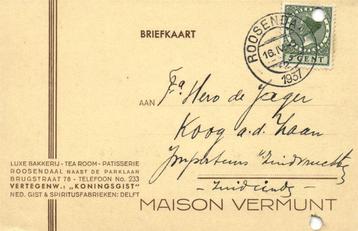 BRIEFKAART
ROOSENDAAL
16.IV
1937
5 CENT
AAN
Fa. Hero de Jager
Koog a.d. Zaan
Importeurs
LUXE BAKKERIJ - TEA ROOM - PATISSERIE
ROOSENDAAL NAAST DE PARKLAAN
BRUGSTRAAT 78 - TELEFOON No. 233
VERTEGENW.: „KONINGSGIST"
NED. GIST & SPIRITUSFABRIEKEN: DELFT
MAISON VERMUNT